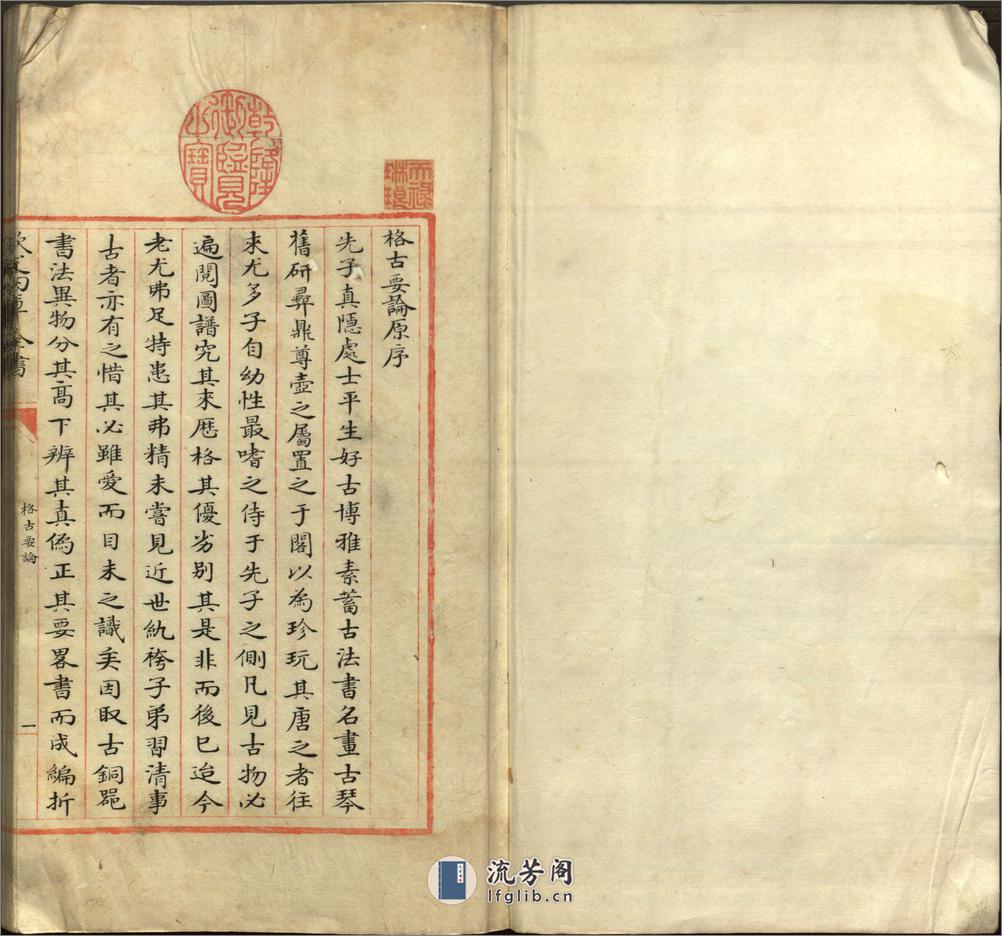 乾隆御覽之寶
天祿琳琅
格古要論原序
先子真隱處士平生好古博雅素蓄古法書名畫古琴
舊研彝鼎尊壺之屬置之于閣以為珍玩其唐之者往
來尤多子自幼性最嗜之侍于先子之側凡見古物必
遍閱圖譜究其來歷格其優劣別其是非而後巳迨今
老尤弗足特患其弗精未嘗見近世紈袴子弟習清事
古者亦有之惜其心雖愛而目未之識矣因取古銅器
書法異物分其高下辨其真偽正其要畧書而成編折
欽定四庫全書
格古要論
一
流芳阁
lfglib.cn